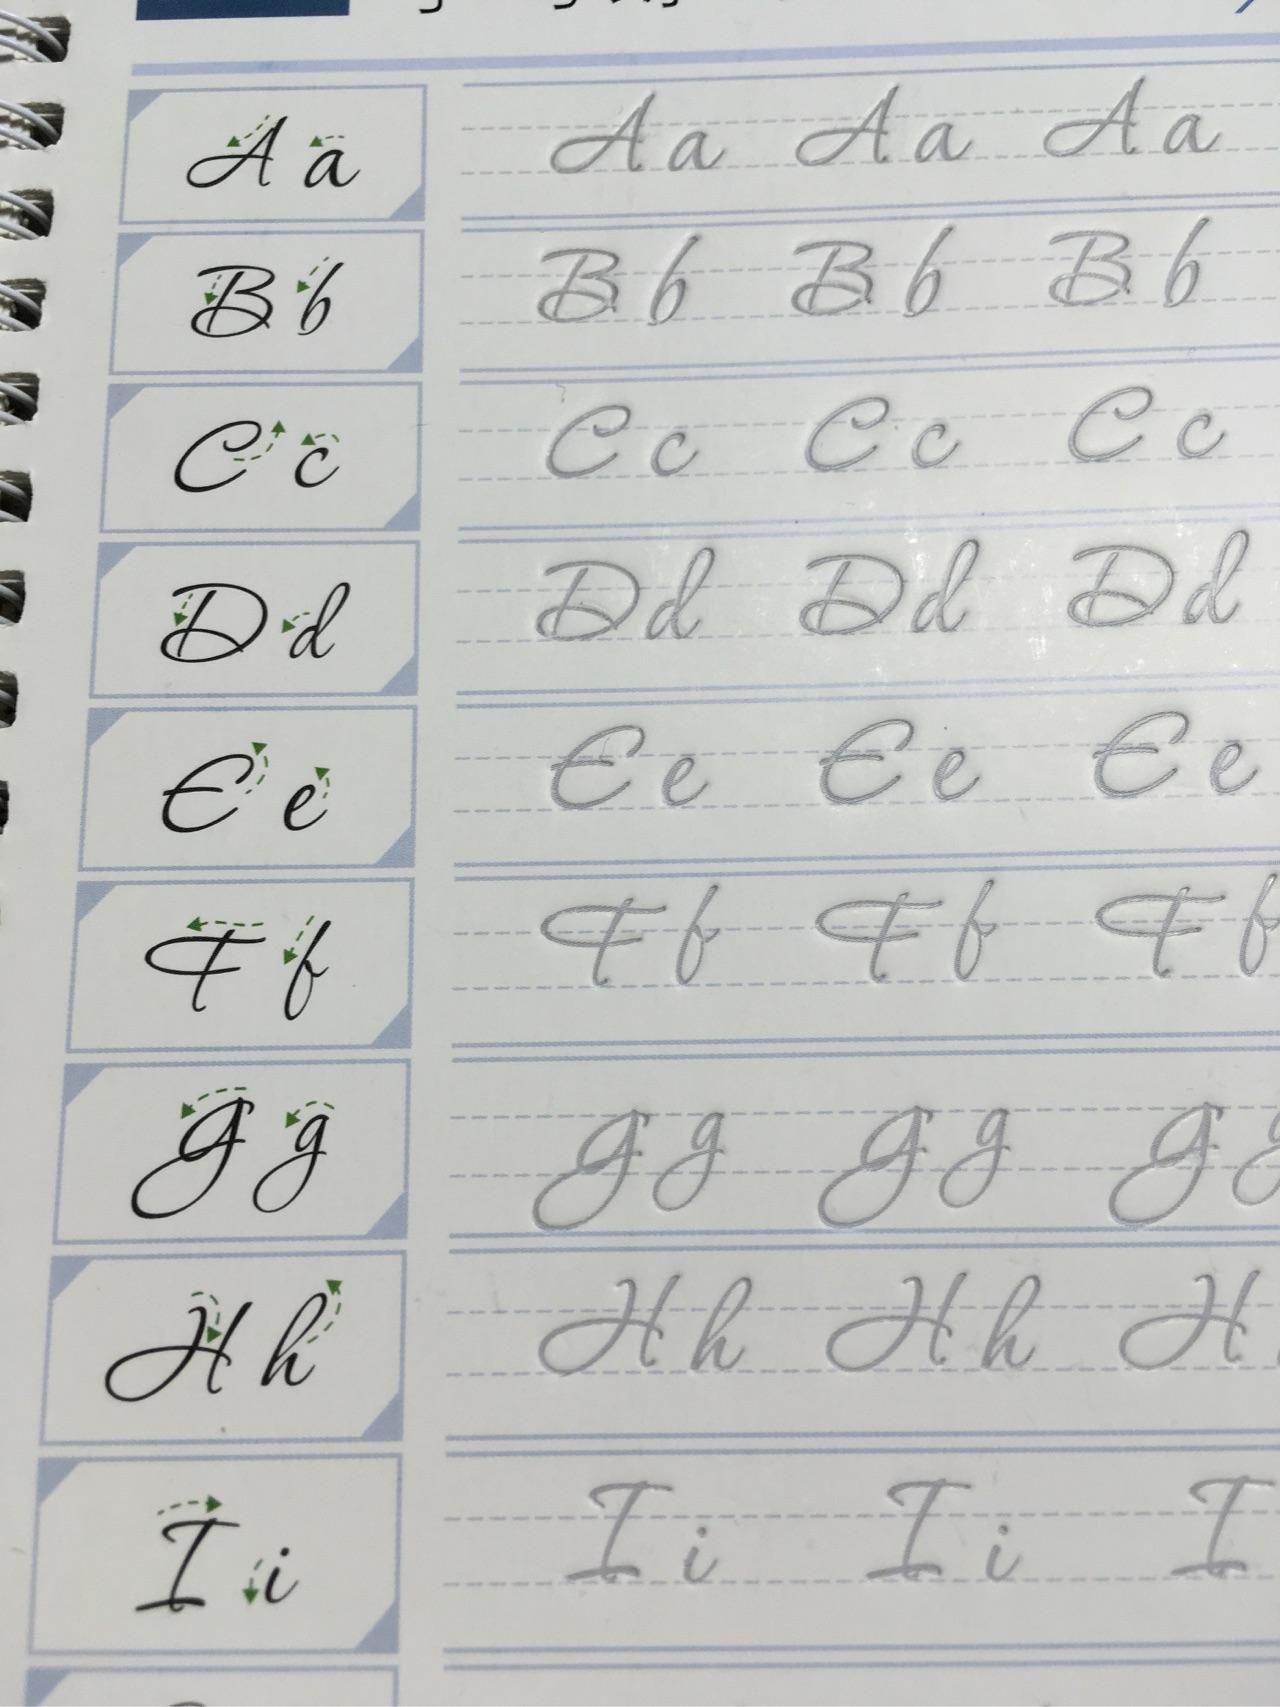 A a A a A a A a
B b B b B b B b
C c C c C c C c
D d D d D d D d
E e E e E e E e
F f F f F f F f
G g G g G g G g
H h H h H h H
I i I i I i I